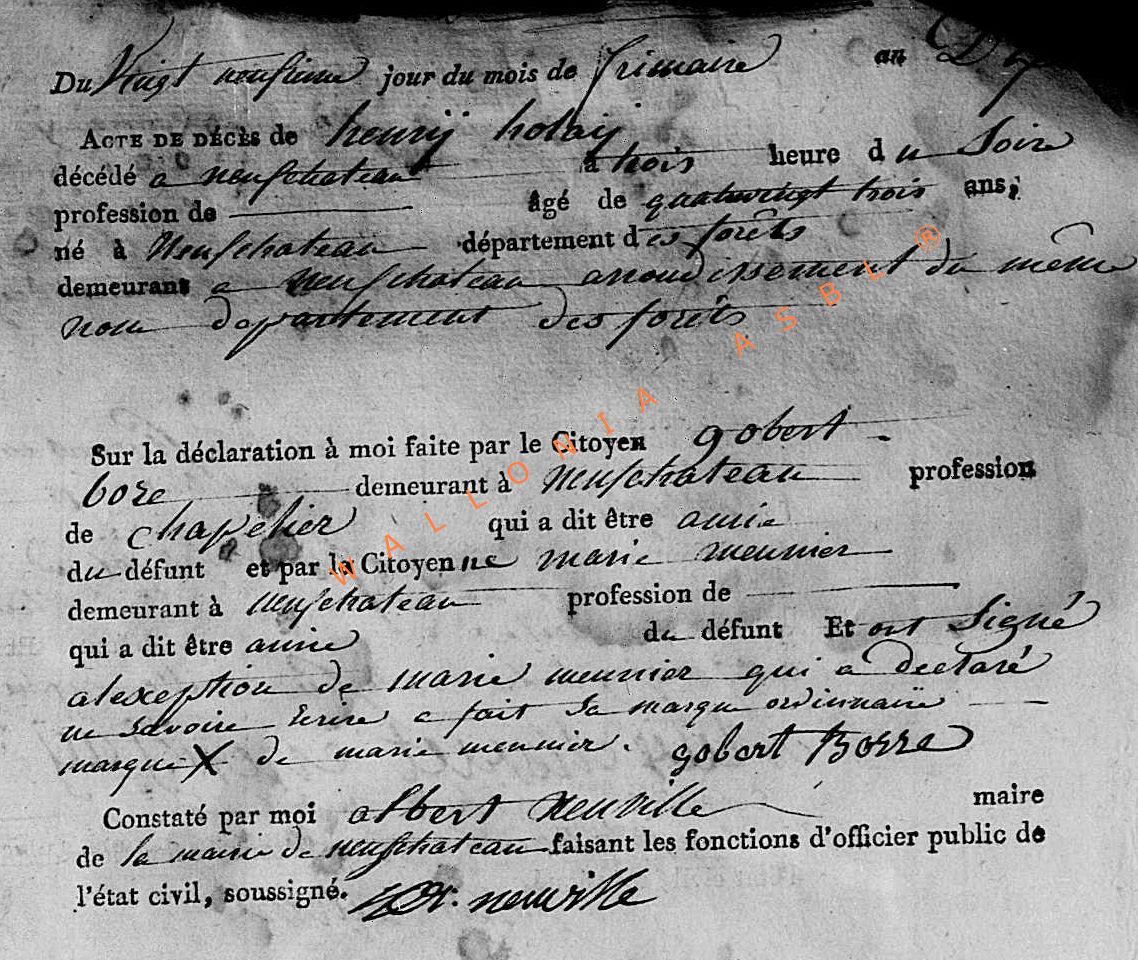 Du Vingt neufieme jour du mois de frimaire an
ACTE DE DÉCÈS de henrij holaij
décédé a neufchateau à trois heure du Soir
profession de âgé de quatrevingt trois ans,
né à Neufchateau département des forêts
demeurant a neufchateau arrondissement du même
nom departement des forêts
Sur la déclaration à moi faite par le Citoyen gobert
bore demeurant à neufchateau profession
de chapelier qui a dit être amie
du défunt et par la Citoyenne marie meunier
demeurant à neufchateau profession de
qui a dit être amie du défunt Et ont Signé
alexeption de marie meunier qui a declaré
ne savoire Ecrire a fait sa marque ordinnaire
marque X de marie meunier. gobert Borre
Constaté par moi albert neuville maire
de la mairie de neufchateau faisant les fonctions d'officier public de
l'état civil, soussigné. neuville
WALLONIA ASBL ®